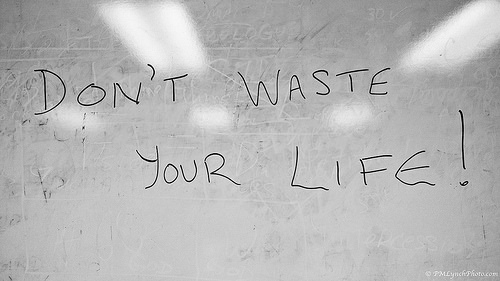 DON'T WASTE
YOUR LIFE!
© PMLynchPhoto.com